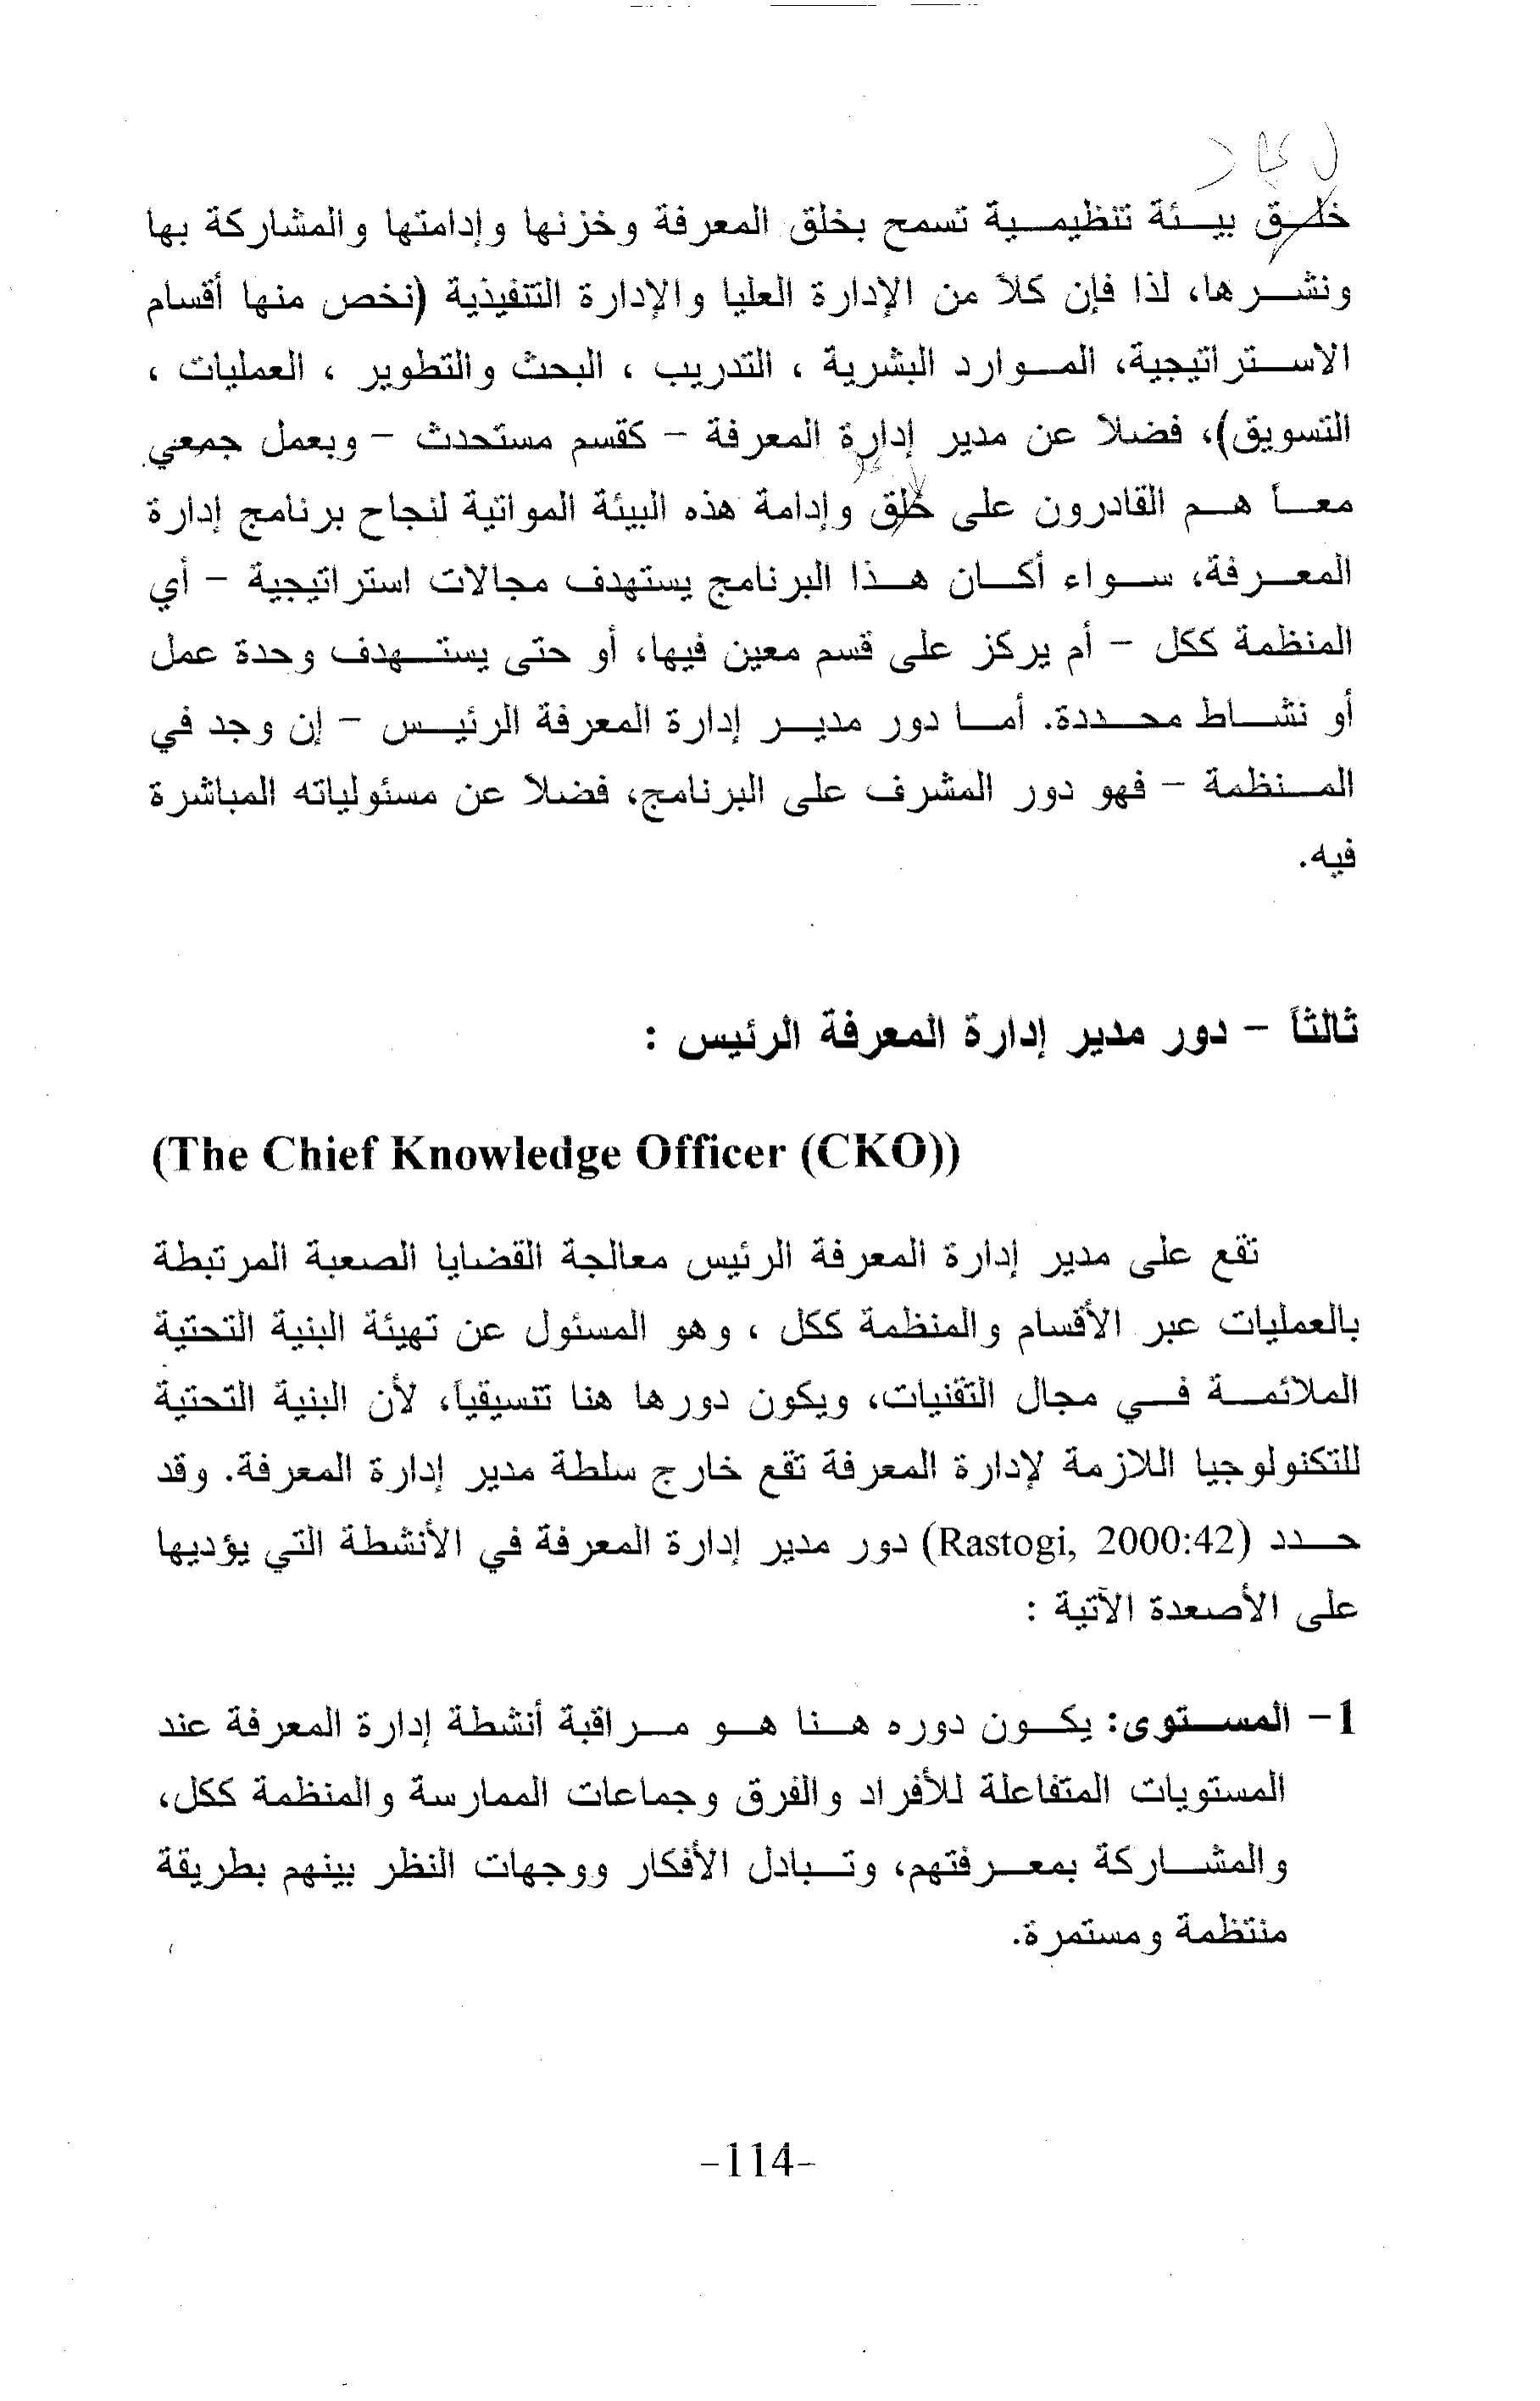 خلق بيئة تنظيمية تسمح بخلق المعرفة وخزنها وإدامتها والمشاركة بها
ونشرها، لذا فإن كلاً من الإدارة العليا والإدارة التنفيذية (نخص منها أقسام
الاستراتيجية، الموارد البشرية ، التدريب ، البحث والتطوير ، العمليات ،
التسويق)، فضلاً عن مدير إدارة المعرفة - كقسم مستحدث - وبعمل جمعي
معاً هم القادرون على خلق وإدامة هذه البيئة المواتية لنجاح برنامج إدارة
المعرفة، سواء أكان هذا البرنامج يستهدف مجالات استراتيجية - أي
المنظمة ككل - أم يركز على قسم معين فيها، أو حتى يستهدف وحدة عمل
أو نشاط محددة. أما دور مدير إدارة المعرفة الرئيس - إن وجد في
المنظمة - فهو دور المشرف على البرنامج، فضلاً عن مسئولياته المباشرة
فيه.
ثالثاً - دور مدير إدارة المعرفة الرئيس :
(The Chief Knowledge Officer (CKO))
تقع على مدير إدارة المعرفة الرئيس معالجة القضايا الصعبة المرتبطة
بالعمليات عبر الأقسام والمنظمة ككل ، وهو المسئول عن تهيئة البنية التحتية
الملائمة في مجال التقنيات، ويكون دورها هنا تنسيقياً، لأن البنية التحتية
للتكنولوجيا اللازمة لإدارة المعرفة تقع خارج سلطة مدير إدارة المعرفة. وقد
حدد (Rastogi, 2000:42) دور مدير إدارة المعرفة في الأنشطة التي يؤديها
على الأصعدة الآتية :
1- المستوى: يكون دوره هنا هو مراقبة أنشطة إدارة المعرفة عند
المستويات المتفاعلة للأفراد والفرق وجماعات الممارسة والمنظمة ككل،
والمشاركة بمعرفتهم، وتبادل الأفكار ووجهات النظر بينهم بطريقة
منتظمة ومستمرة.
-114-